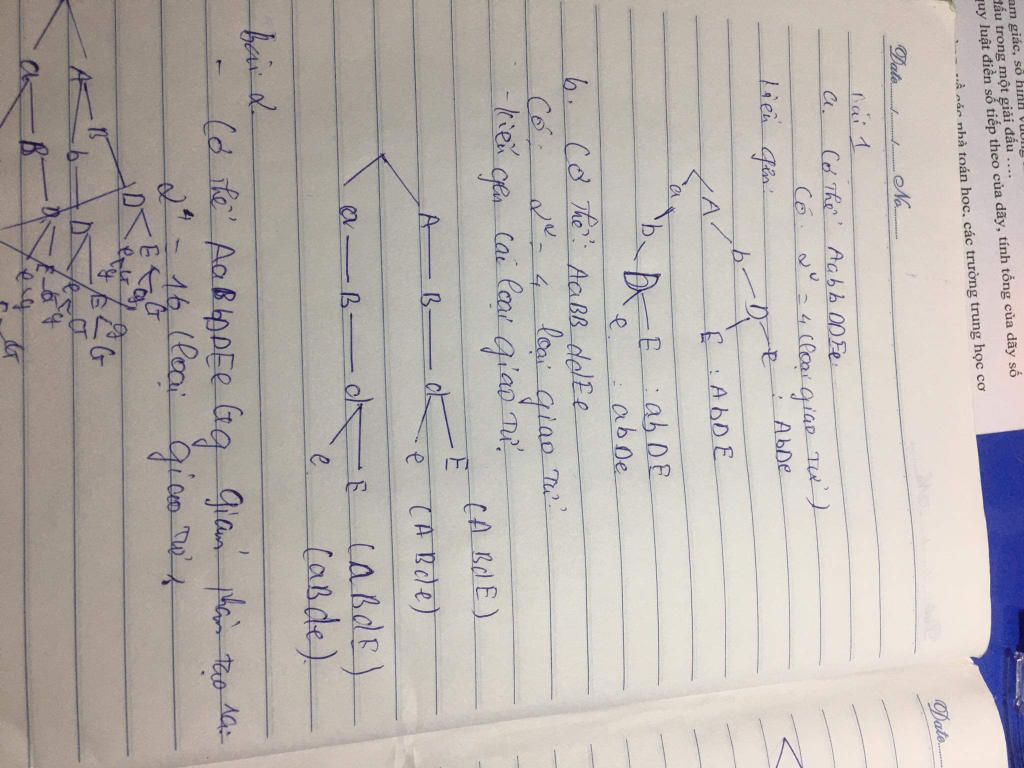 am giác, số hình v
đấu trong một giải đấu ....
quy luật điền số tiếp theo của dãy, tính tổng của dãy số
về các nhà toán học, các trường trung học cơ
Date....../....../...... No..........
Bài 1
a. Cơ thể AabbDDEe
Có 2² = 4 (loại giao tử)
kiểu gen:
A b D e : AbDe
E : AbDE
a b D E : abDE
e : abDe
b. Cơ thể: AaBBddEe
Có: 2² = 4 loại giao tử.
- Kiểu gen cái loại giao tử.
A — B — d E (ABdE)
e (ABde)
a — B — d E (aBdE)
e (aBde).
bài 2.
- Cơ thể AaBbDdEeGg giảm phân tạo ra:
2⁴ = 16 (loại giao tử)
A B D E G
b D E G
a B D E G
Date......